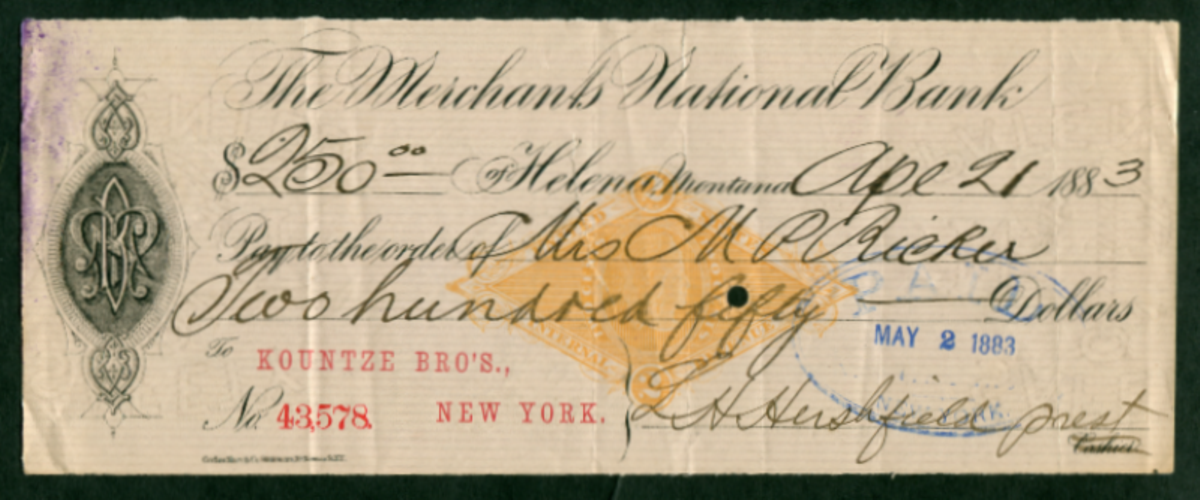 The Merchants National Bank
$250.00 of Helena Montana Apl 21 1883
Pay to the order of Mrs M P Ricker
Two hundred fifty Dollars
PAID
To KOUNTZE BRO'S.,
MAY 2 1883
No. 43,578. NEW YORK.
L H Hershfield prest
Cashier